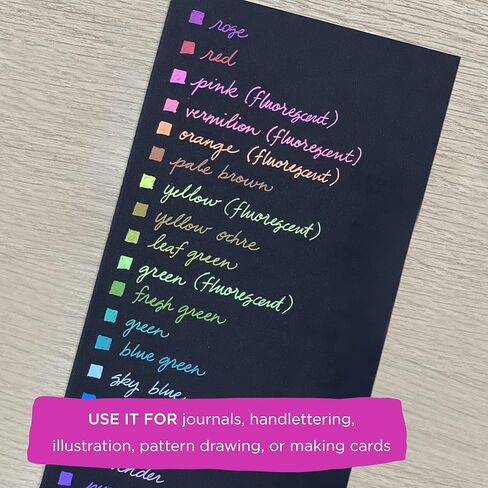 rose
red
pink (fluorescent)
vermilion (fluorescent)
orange (fluorescent)
pale brown
yellow (fluorescent)
yellow ochre
leaf green
green (fluorescent)
fresh green
green
blue green
sky blue
USE IT FOR journals, handlettering,
illustration, pattern drawing, or making cards